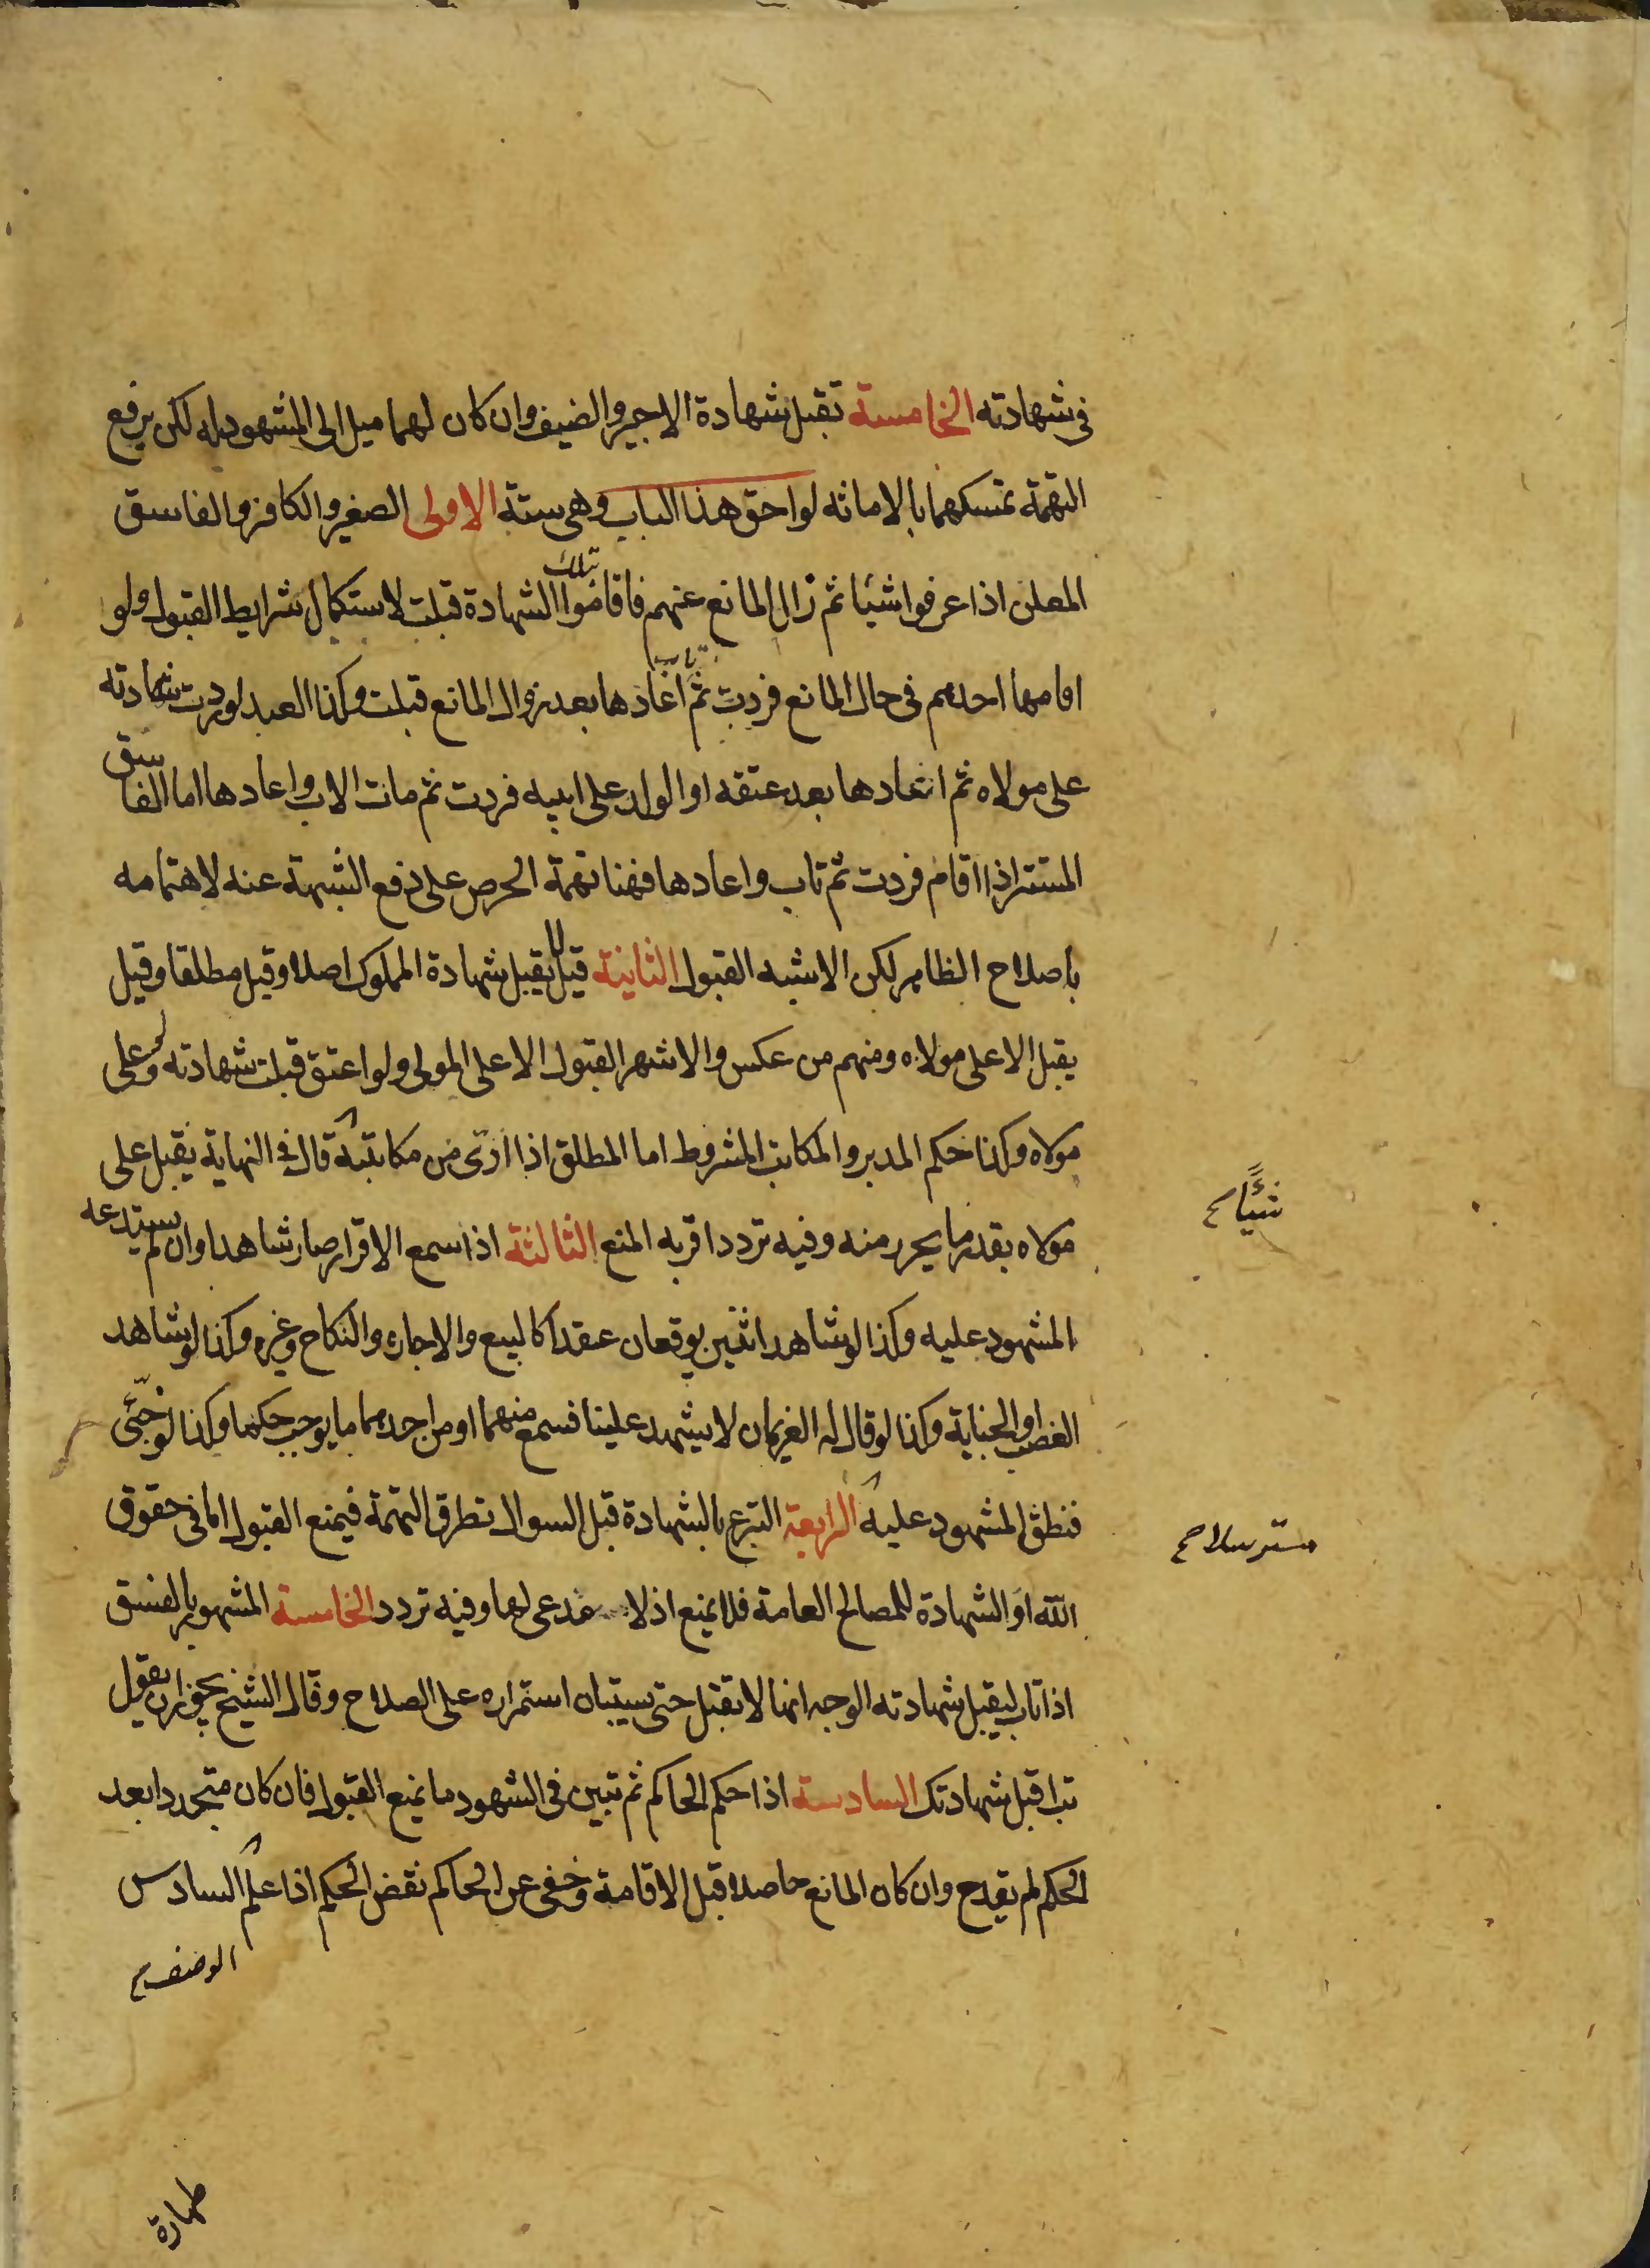 في شهادته الخامسة تقبل شهادة الاجير والضيف وان كان لهما ميل الى المشهود له لكن يرفع
التهمة تمسكهما بالامانه لواحق هذا الباب وهي ستة الاولى الصغير والكافر والفاسق
المعلن اذا عرفوا شيئا ثم زال المانع عنهم فاقاموا تلك الشهادة قبلت لاستكمال شرايط القبول ولو
اقامها احدهم في حال المانع فردت ثم اعادها بعد زوال المانع قبلت وكذا العبد لو ردت شهادته
على مولاه ثم اعادها بعد عتقه او الولد على ابيه فردت ثم مات الاب واعادها اما الفاسق
المستتر اذا اقام فردت ثم تاب واعادها فهنا تهمة الحرص على دفع الشبهة عنه لاهتمامه
باصلاح الظاهر لكن الاشبه القبول الثانية قيل لا يقبل شهادة المملوك اصلا وقيل مطلقا وقيل
يقبل الا على مولاه ومنهم من عكس والاشهر القبول الا على المولى ولو اعتق قبلت شهادته وعلى
مولاه وكذا حكم المدبر والمكاتب المشروط اما المطلق اذا ادى من مكاتبته قال في النهاية يقبل على
شيئا ح
مولاه بقدر ما يحرر منه وفيه تردد اقربه المنع الثالثة اذا سمع الاقرار صار شاهدا وان لم يستدعه
المشهود عليه وكذا لو شاهد اثنين يوقعان عقدا كالبيع والاجاره والنكاح وغيره وكذا لو شاهد
الغصب او الجناية وكذا لو قال له الغريمان لا يشهد علينا فسمع منهما او من احدهما ما يوجب حكما وكذا لو خبّئ
فنطق المشهود عليه الرابعة التبرع بالشهادة قبل السوال تطرق التهمة فيمنع القبول اما في حقوق
مسترسلا ح
الله او الشهادة للمصالح العامة فلا يمنع اذ لا مدعى لها وفيه تردد الخامسة المشهور بالفسق
اذا تاب ليقبل شهادته الوجه انها لا تقبل حتى يستبان استمراره على الصلاح وقال الشيخ يجوز ان يقول
تب اقبل شهادتك السادسة اذا حكم الحاكم ثم تبين في الشهود ما يمنع القبول فان كان متجددا بعد
الحكم لم يقدح وان كان المانع حاصلا قبل الاقامة وخفي عن الحاكم نقض الحكم اذا علم السادس
الوصف
طهارة